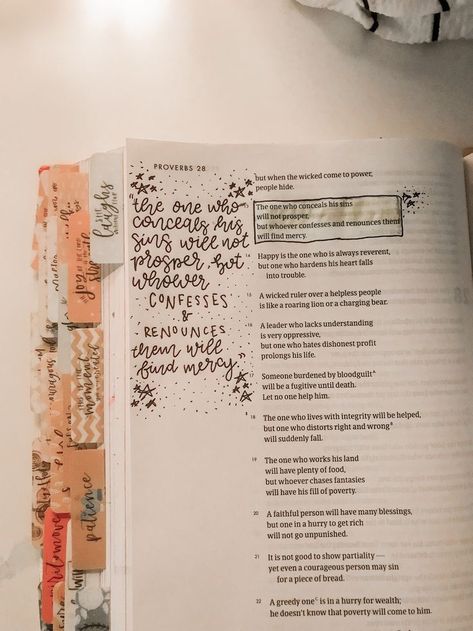 PROVERBS 28
"the one who
conceals his
sins will not
prosper, but
whoever
CONFESSES
&
RENOUNCES
them will
find mercy."
but when the wicked come to power,
people hide.
The one who conceals his sins
will not prosper,
but whoever confesses and renounces them
will find mercy.
14 Happy is the one who is always reverent,
but one who hardens his heart falls
into trouble.
15 A wicked ruler over a helpless people
is like a roaring lion or a charging bear.
16 A leader who lacks understanding
is very oppressive,
but one who hates dishonest profit
prolongs his life.
17 Someone burdened by bloodguilt A
will be a fugitive until death.
Let no one help him.
18 The one who lives with integrity will be helped,
but one who distorts right and wrong B
will suddenly fall.
19 The one who works his land
will have plenty of food,
but whoever chases fantasies
will have his fill of poverty.
20 A faithful person will have many blessings,
but one in a hurry to get rich
will not go unpunished.
21 It is not good to show partiality —
yet even a courageous person may sin
for a piece of bread.
22 A greedy one C is in a hurry for wealth;
he doesn't know that poverty will come to him.
laughs
joy
moment
patience